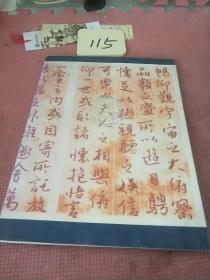 115
暢仰觀宇宙之大俯察
品類之盛所以遊目騁
懷足以極視聽之娛信
可樂也夫人之相與俯
仰一世或取諸懷抱悟言
一室之內或因寄所託放
浪形骸之外雖趣舍萬